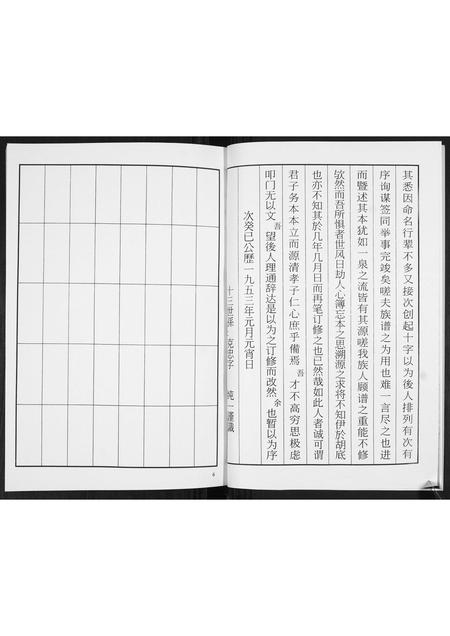 其悉因命名行辈不多又接次创起十字以为後人排列有次有
序询谋签同举事完竣矣嗟夫族谱之为用也难一言尽之也进
而暨述其本犹如一泉之流皆有其源嗟我族人顾谱之重能不修
欤然而吾所惧者世风日劫人心薄忘本之思溯源之求将不知伊於胡底
也亦不知其於几年几月日而再笔订修之也已然哉如此人者诚可谓
君子务本本立而源清孝子仁心庶乎備焉吾才不高穷思极虑
叩门无以文吾望後人理通辞达是以为之订修而改然余也暂以为序
次癸已公歷一九五三年元月元宵日
十三世孫克忠字 纯 谨識
6